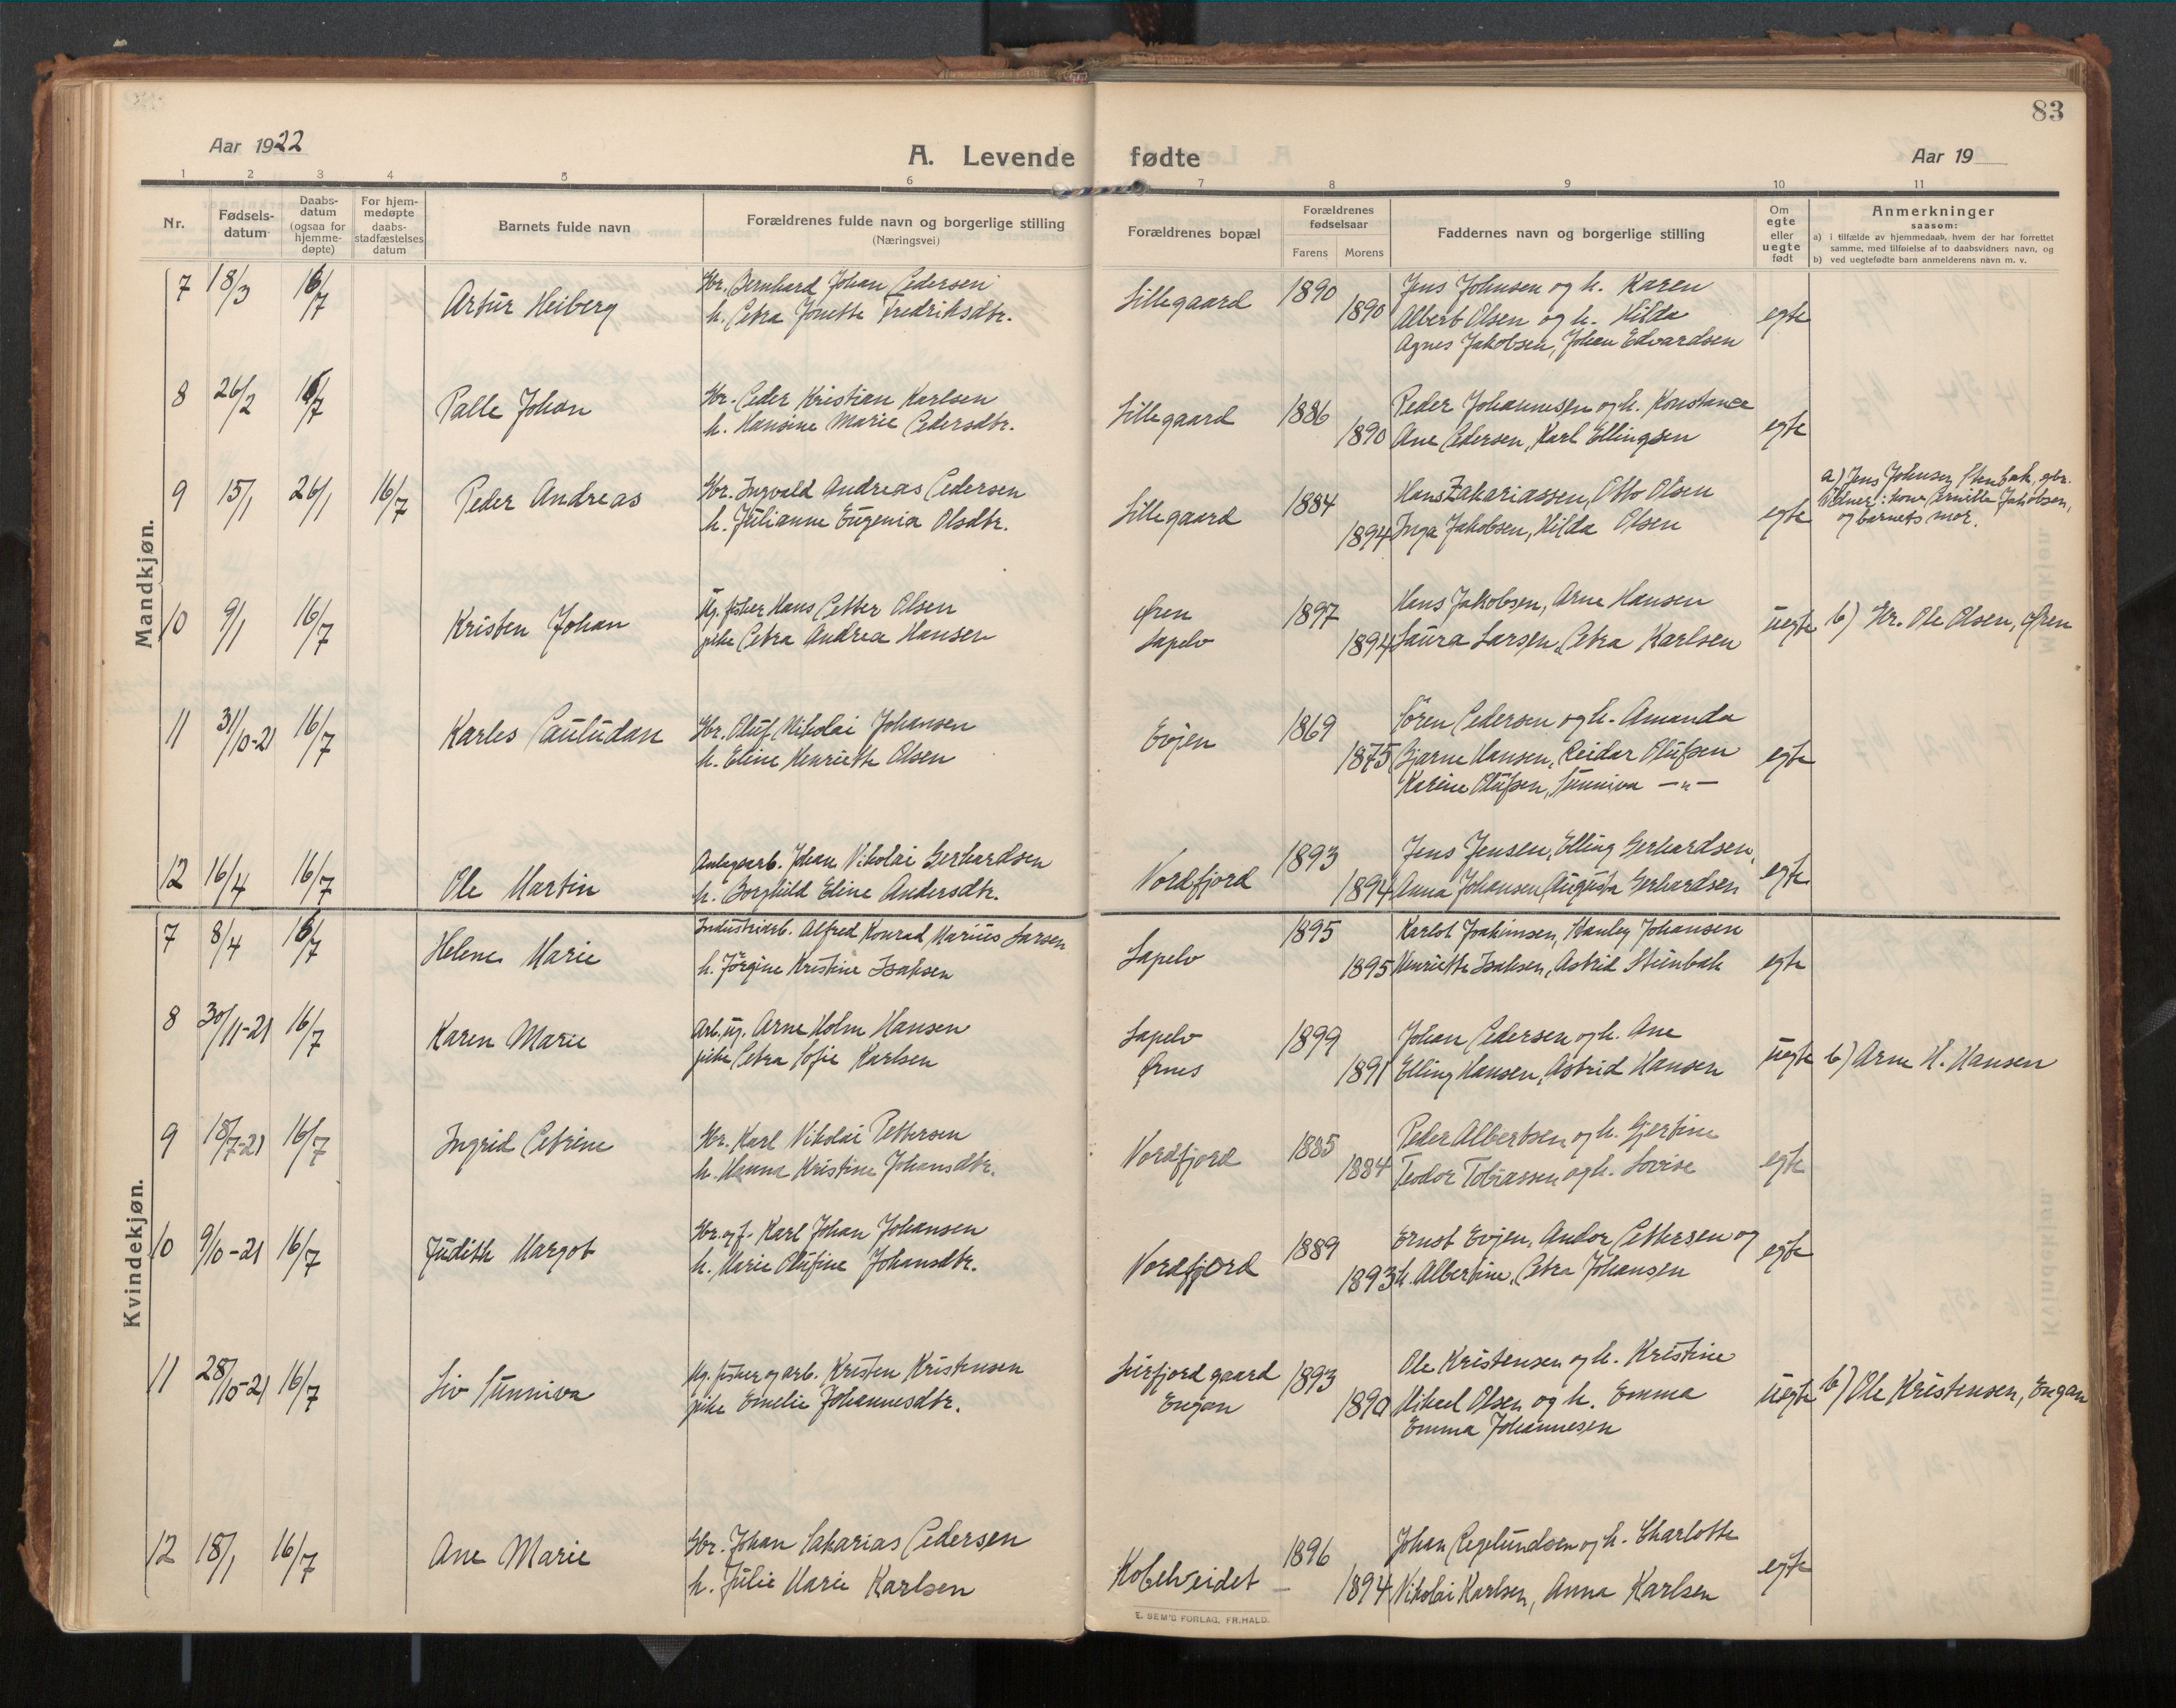 83
Aar 1922
A. Levende fødte
Aar 19
1 2 3 4 5 6 7 8 9 10 11
Nr.
Fødsels-
datum
Daabs-
datum
(ogsaa for
hjemme-
døpte)
For hjem-
medøpte
daabs-
stadfæstelses
datum
Barnets fulde navn
Forældrenes fulde navn og borgerlige stilling
(Næringsvei)
Forældrenes bopæl
Forældrenes
fødselsaar
Farens Morens
Faddernes navn og borgerlige stilling
Om
egte
eller
uegte
født
Anmerkninger
saasom:
a) i tilfælde av hjemmedaab, hvem der har forrettet
samme, med tilføielse af to daabsvidners navn, og
b) ved uegtefødte barn anmelderens navn m. v.
Mandkjøn.
7 18/3 16/7 Artur Heiberg
Gbr. Bernhard Johan Pedersen
h. Petra Jonette Fredriksdtr.
Lillegaard 1890 1890
Jens Johnsen og h. Karen
Albert Olsen og h. Hilda
Agnes Jakobsen, Johan Edvardsen
egte
8 26/2 16/7 Palle Johan
Gbr. Peder Kristian Karlsen
h. Hansine Marie Pedersdtr.
Lillegaard 1886 1890
Peder Johannesen og h. Konstance
Ane Pedersen, Karl Ellingsen
egte
9 15/1 26/1 16/7 Peder Andreas
Gbr. Ingvald Andreas Pedersen
h. Julianne Eugenia Olsdtr.
Lillegaard 1884 1894
Hans Zakariassen, Otto Olsen
Inga Jakobsen, Hilda Olsen
egte
a) Jens Johnsen, Stenbak, gbr.
Vidner: kone Pernille Jakobsen,
og barnets mor.
10 9/1 16/7 Kristen Johan
Ug. fisker Hans Petter Olsen
pike Petra Andrea Hansen
Øren
Sapelv
1897 1894
Hans Jakobsen, Arne Hansen
Laura Larsen, Petra Karlsen
uegte
b) Gr. Ole Olsen, Øren
11 31/10-21 16/7 Karles Pauludan
Gbr. Oluf Nikolai Johansen
h. Eline Henriette Olsen
Evjen 1869 1875
Sören Pedersen og h. Amanda
Bjarne Hansen, Reidar Olufsen
Karine Olufsen, Sunniva —"—
egte
12 16/4 16/7 Ole Martin
Anlægsarb. Johan Nikolai Gerhardsen
h. Borghild Eline Andersdtr.
Nordfjord 1893 1894
Jens Jensen, Elling Gerhardsen,
Anna Johansen, Augusta Gerhardsen
egte
Kvindekjøn.
7 8/4 16/7 Helene Marie
Industriarb. Alfred Konrad Marius Larsen
h. Jörgine Kristine Isaksen
Sapelv 1895 1895
Karlot Joakimsen, Hanley Johansen
Henriette Isaksen, Astrid Stenbak
egte
8 30/11-21 16/7 Karen Marie
Arb. ug. Arne Holm Hansen
pike Petra Sofie Karlsen
Sapelv
Ørnes
1899 1891
Johan Pedersen og h. Ane
Elling Hansen, Astrid Hansen
uegte
b) Arne H. Hansen
9 18/7-21 16/7 Ingrid Petrine
Gbr. Karl Nikolai Pettersen
h. Hanna Kristine Johansdtr.
Nordfjord 1885 1884
Peder Albertsen og h. Gjertine
Teodor Tobiassen og h. Lovise
egte
10 9/10-21 16/7 Judith Margot
Gbr. og f. Karl Johan Johansen
h. Marie Olufine Johansdtr.
Nordfjord 1889 1893
Ernst Evjen, Andor Pettersen og
h. Albertine, Petra Johansen
egte
11 28/10-21 16/7 Liv Sunniva
Ug. fisker og arb. Kristen Kristensen
pike Emelie Johannesdtr.
Leirfjord gaard
Engan
1893 1890
Ole Kristensen og h. Kristine
Mikael Olsen og h. Emma
Emma Johannesen
uegte
b) Ole Kristensen, Engan
12 18/1 16/7 Ane Marie
Gbr. Johan Sakarias Pedersen
h. Julie Marie Karlsen
Kobelveidet 1896 1894
Johan Regelundsen og h. Charlotte
Nikolai Karlsen, Anna Karlsen
egte
E. SEM'S FORLAG, FR.HALD.